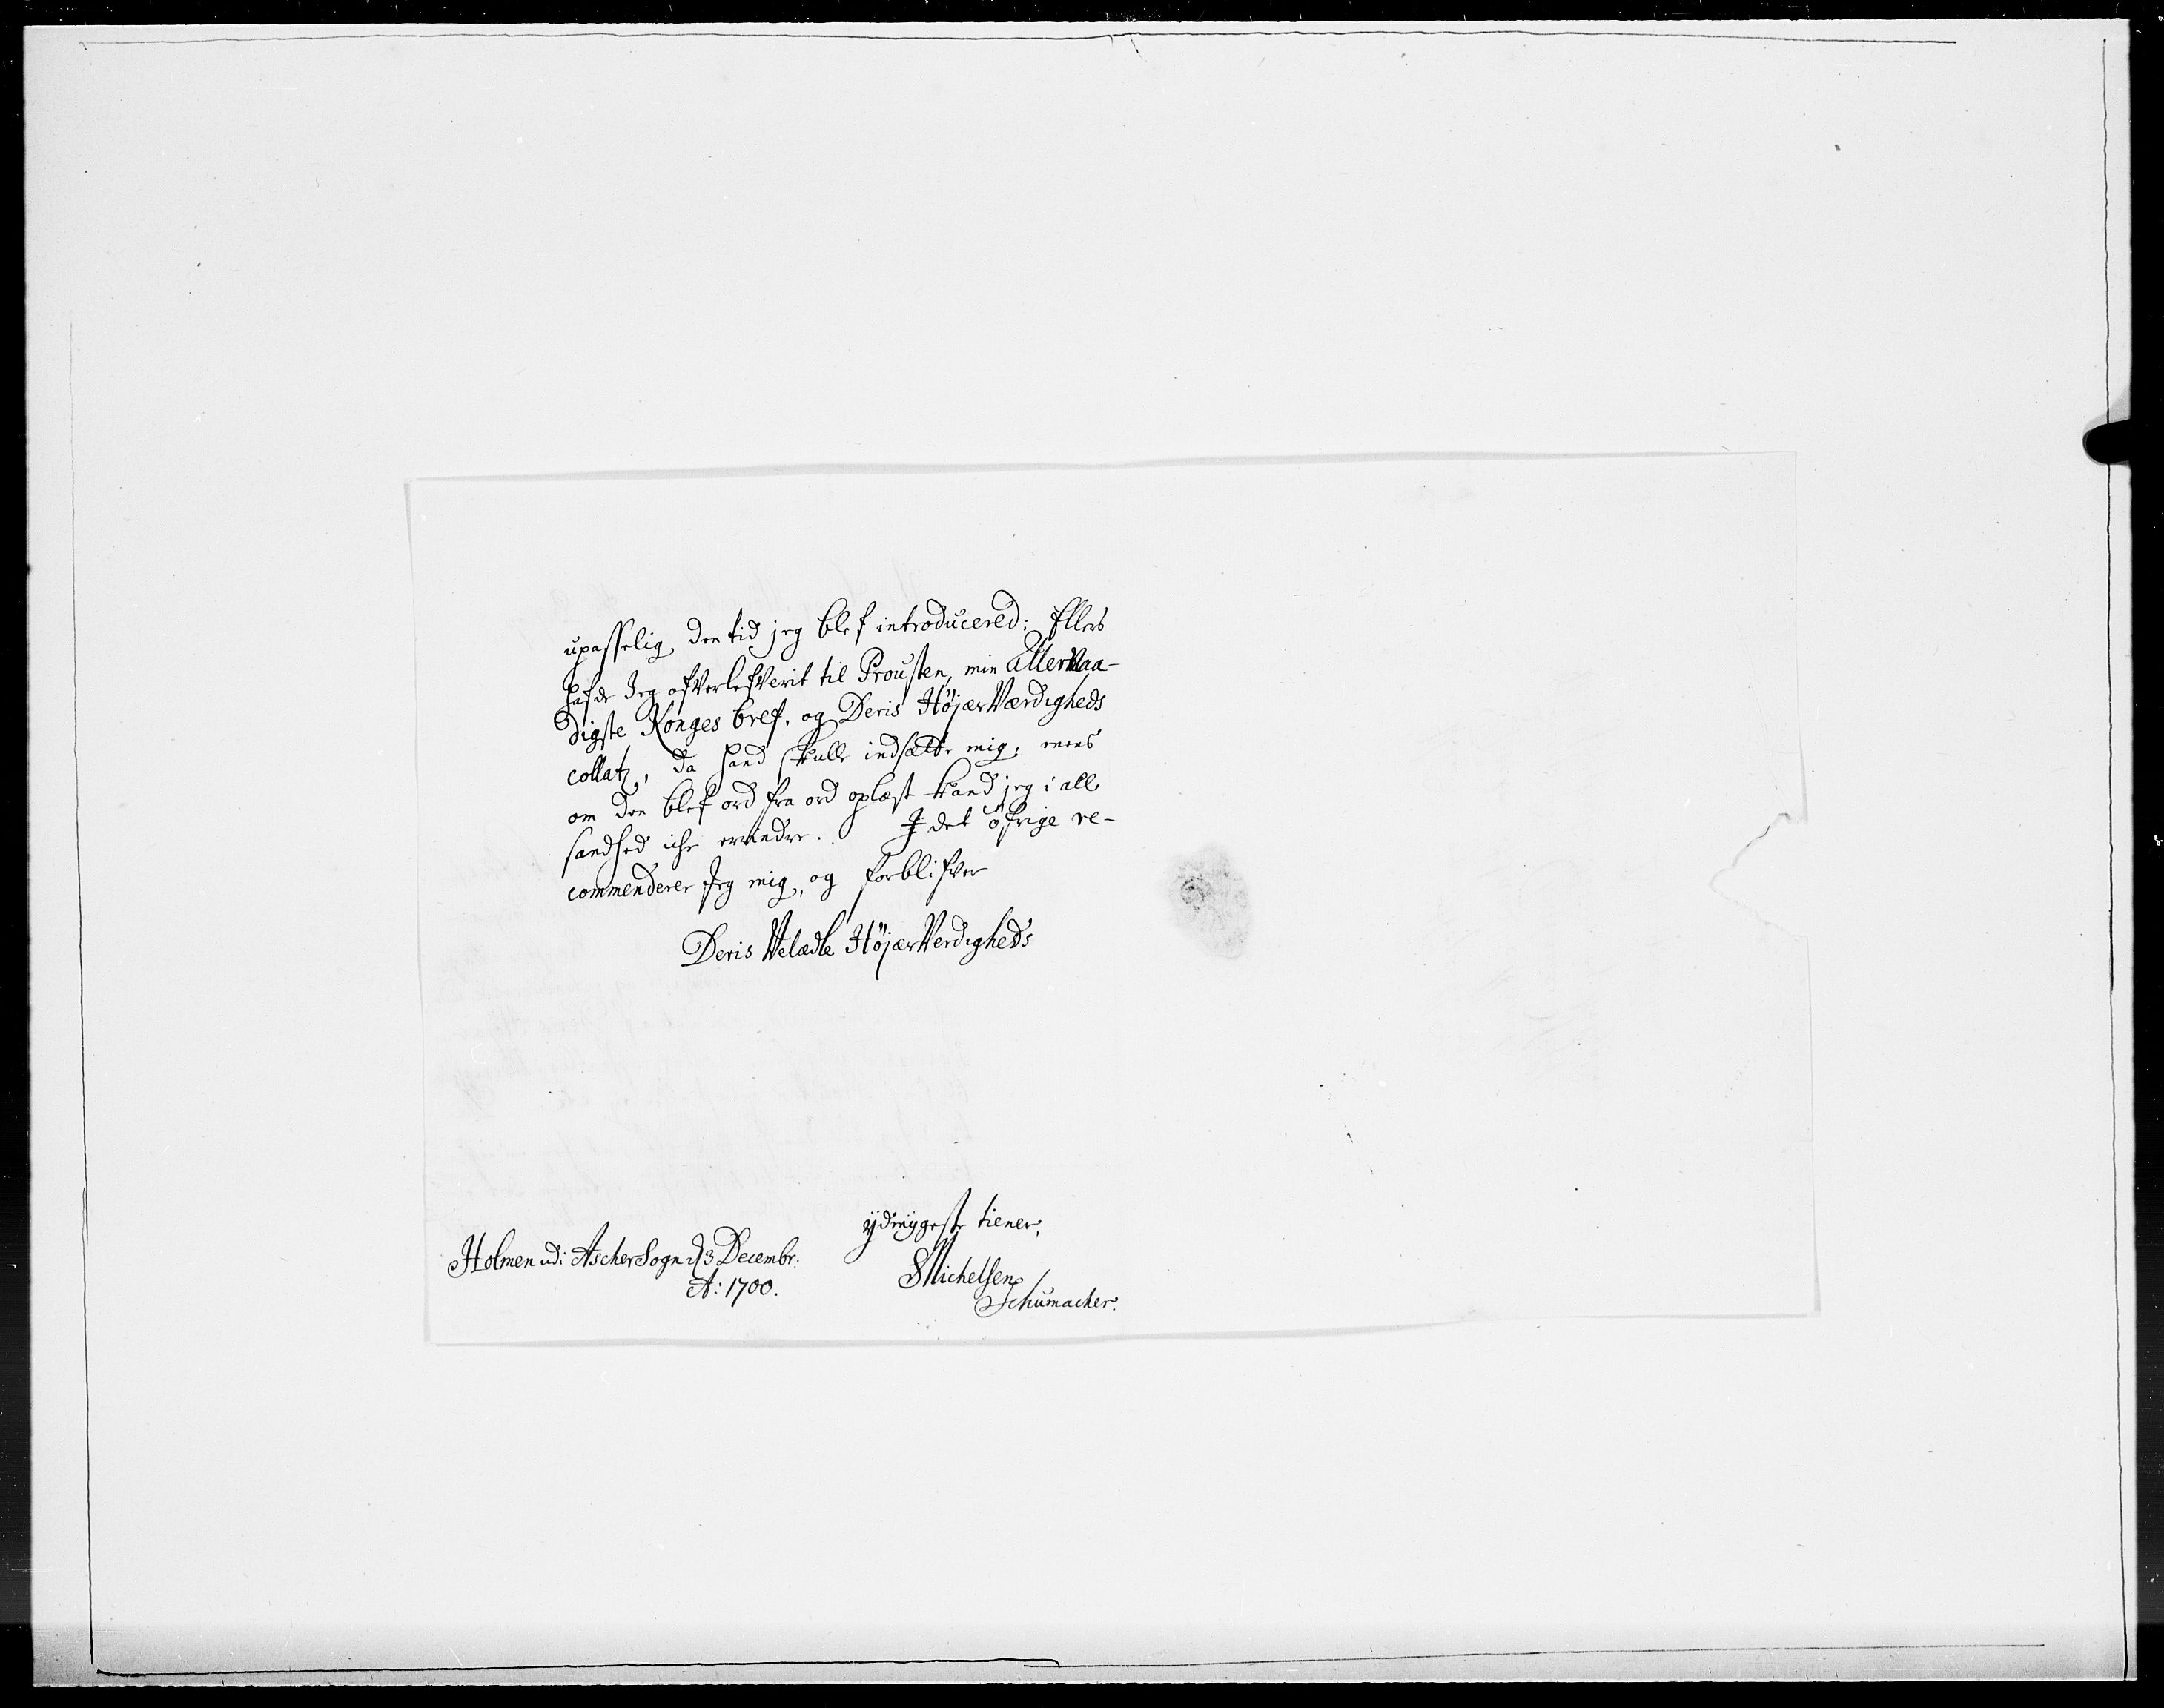 upasselig, den tid jeg blef introducered; Ellers
hafde Jeg ofverlefverit til Prousten, min Allernaa-
digste Konges bref, og Deris HöjærVærdigheds
collatz, da hand skulle indsætte mig; mens
om den blef ord fra ord oplæst kand jeg i all
sandhed iche erindre. I det öfrige re-
commenderer Jeg mig, og forblifver
Deris Velædle HöjærVerdigheds
ÿdmÿgeste tiener,
Holmen udi Ascher Sogn d 3 Decembr:
A: 1700.
SMichelsen
Schumacher.